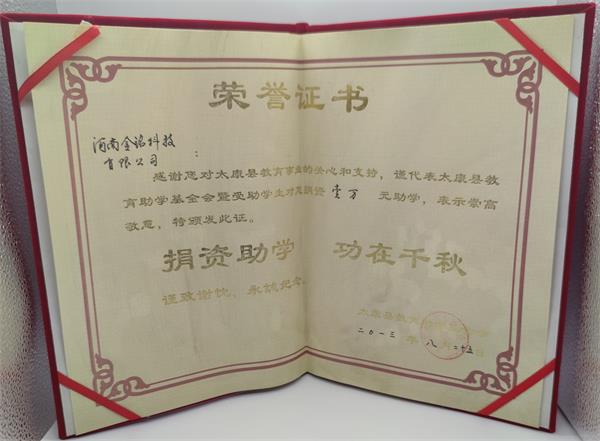 荣誉证书
河南金铭科技
有限公司：
感谢您对太康县教育事业的关心和支持，谨代表太康县教
育助学基金会暨受助学生对您捐资 壹万 元助学，表示崇高
敬意，特颁发此证。
捐资助学 功在千秋
谨致谢忱，永铭光念。
太康县教育助学基金会
二〇一三年八月二十五日